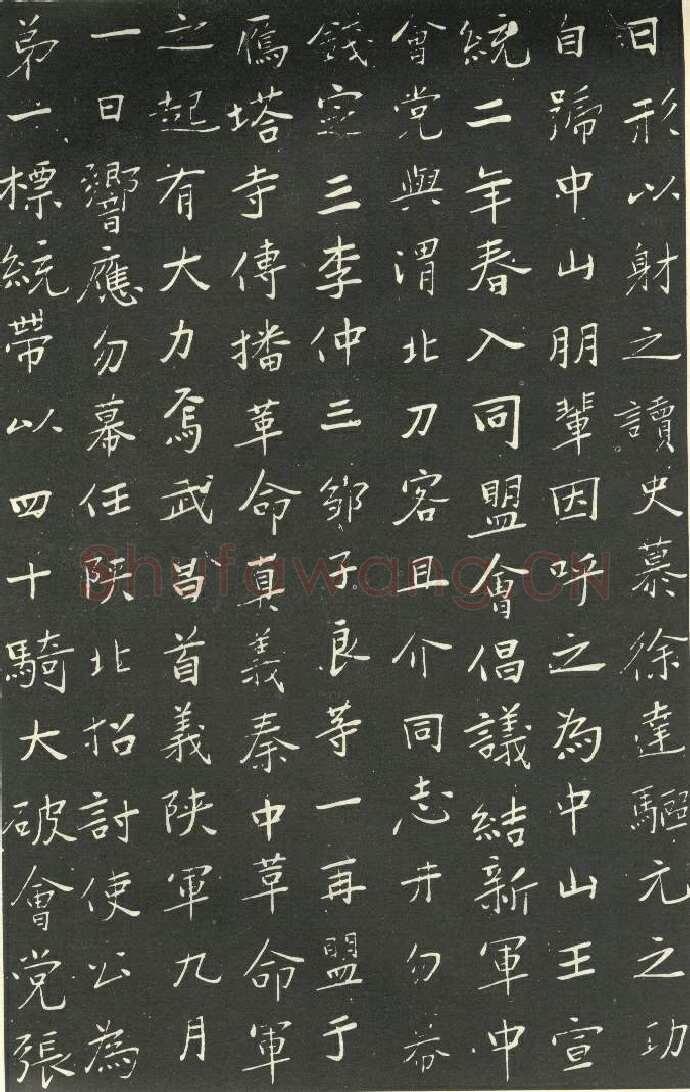 日形以射之讀史慕徐達驅元之功
自號中山朋輩因呼之為中山王宣
統二年春入同盟會倡議結新軍中
會党與渭北刀客且介同志井勿幕
錢定三李仲三鄒子良等一再盟于
鴈塔寺傳播革命真義秦中革命軍
之起有大力焉武昌首義陝軍九月
一日響應勿幕任陝北招討使公為
第一標統帶以四十騎大破會党張
Shufawang.CN